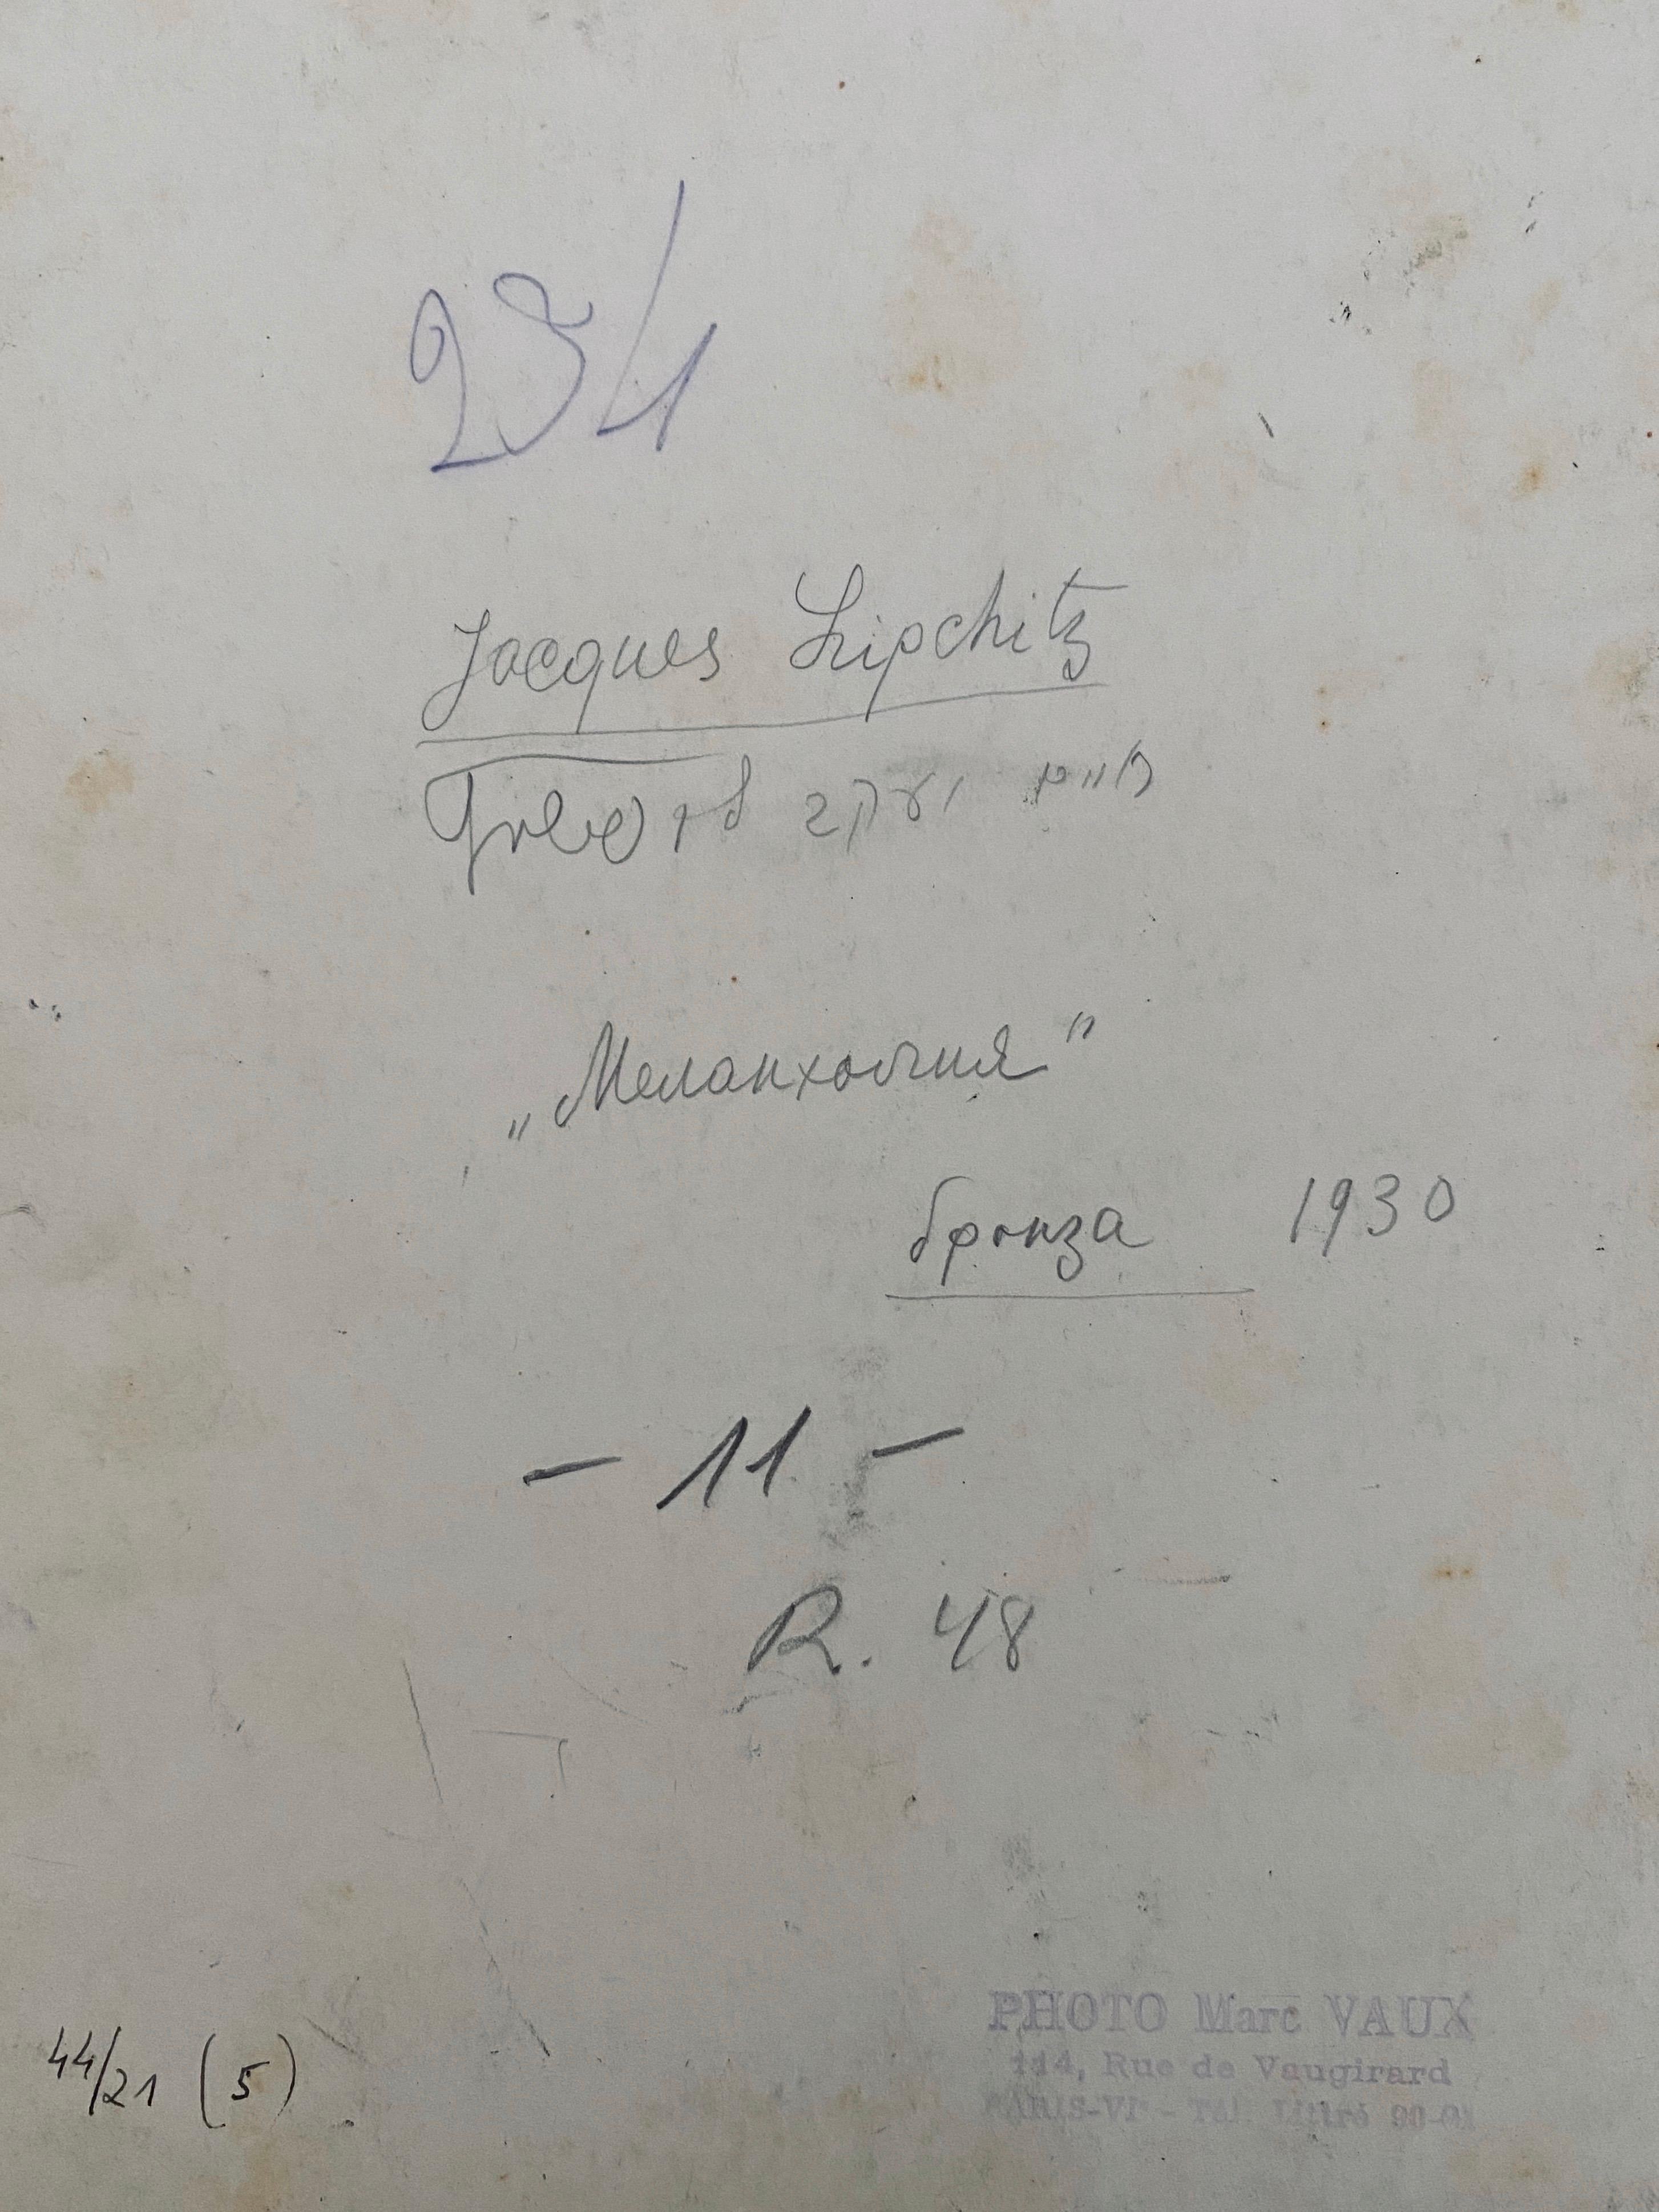 Jacques Lipchitz
חיים יעקב ליפשיץ
„Меланхолия”
бронза 1930
— 11 —
R. 48
44/21 (5)
PHOTO Marc VAUX
114, Rue de Vaugirard
PARIS-VIᵉ - Tél. Littré